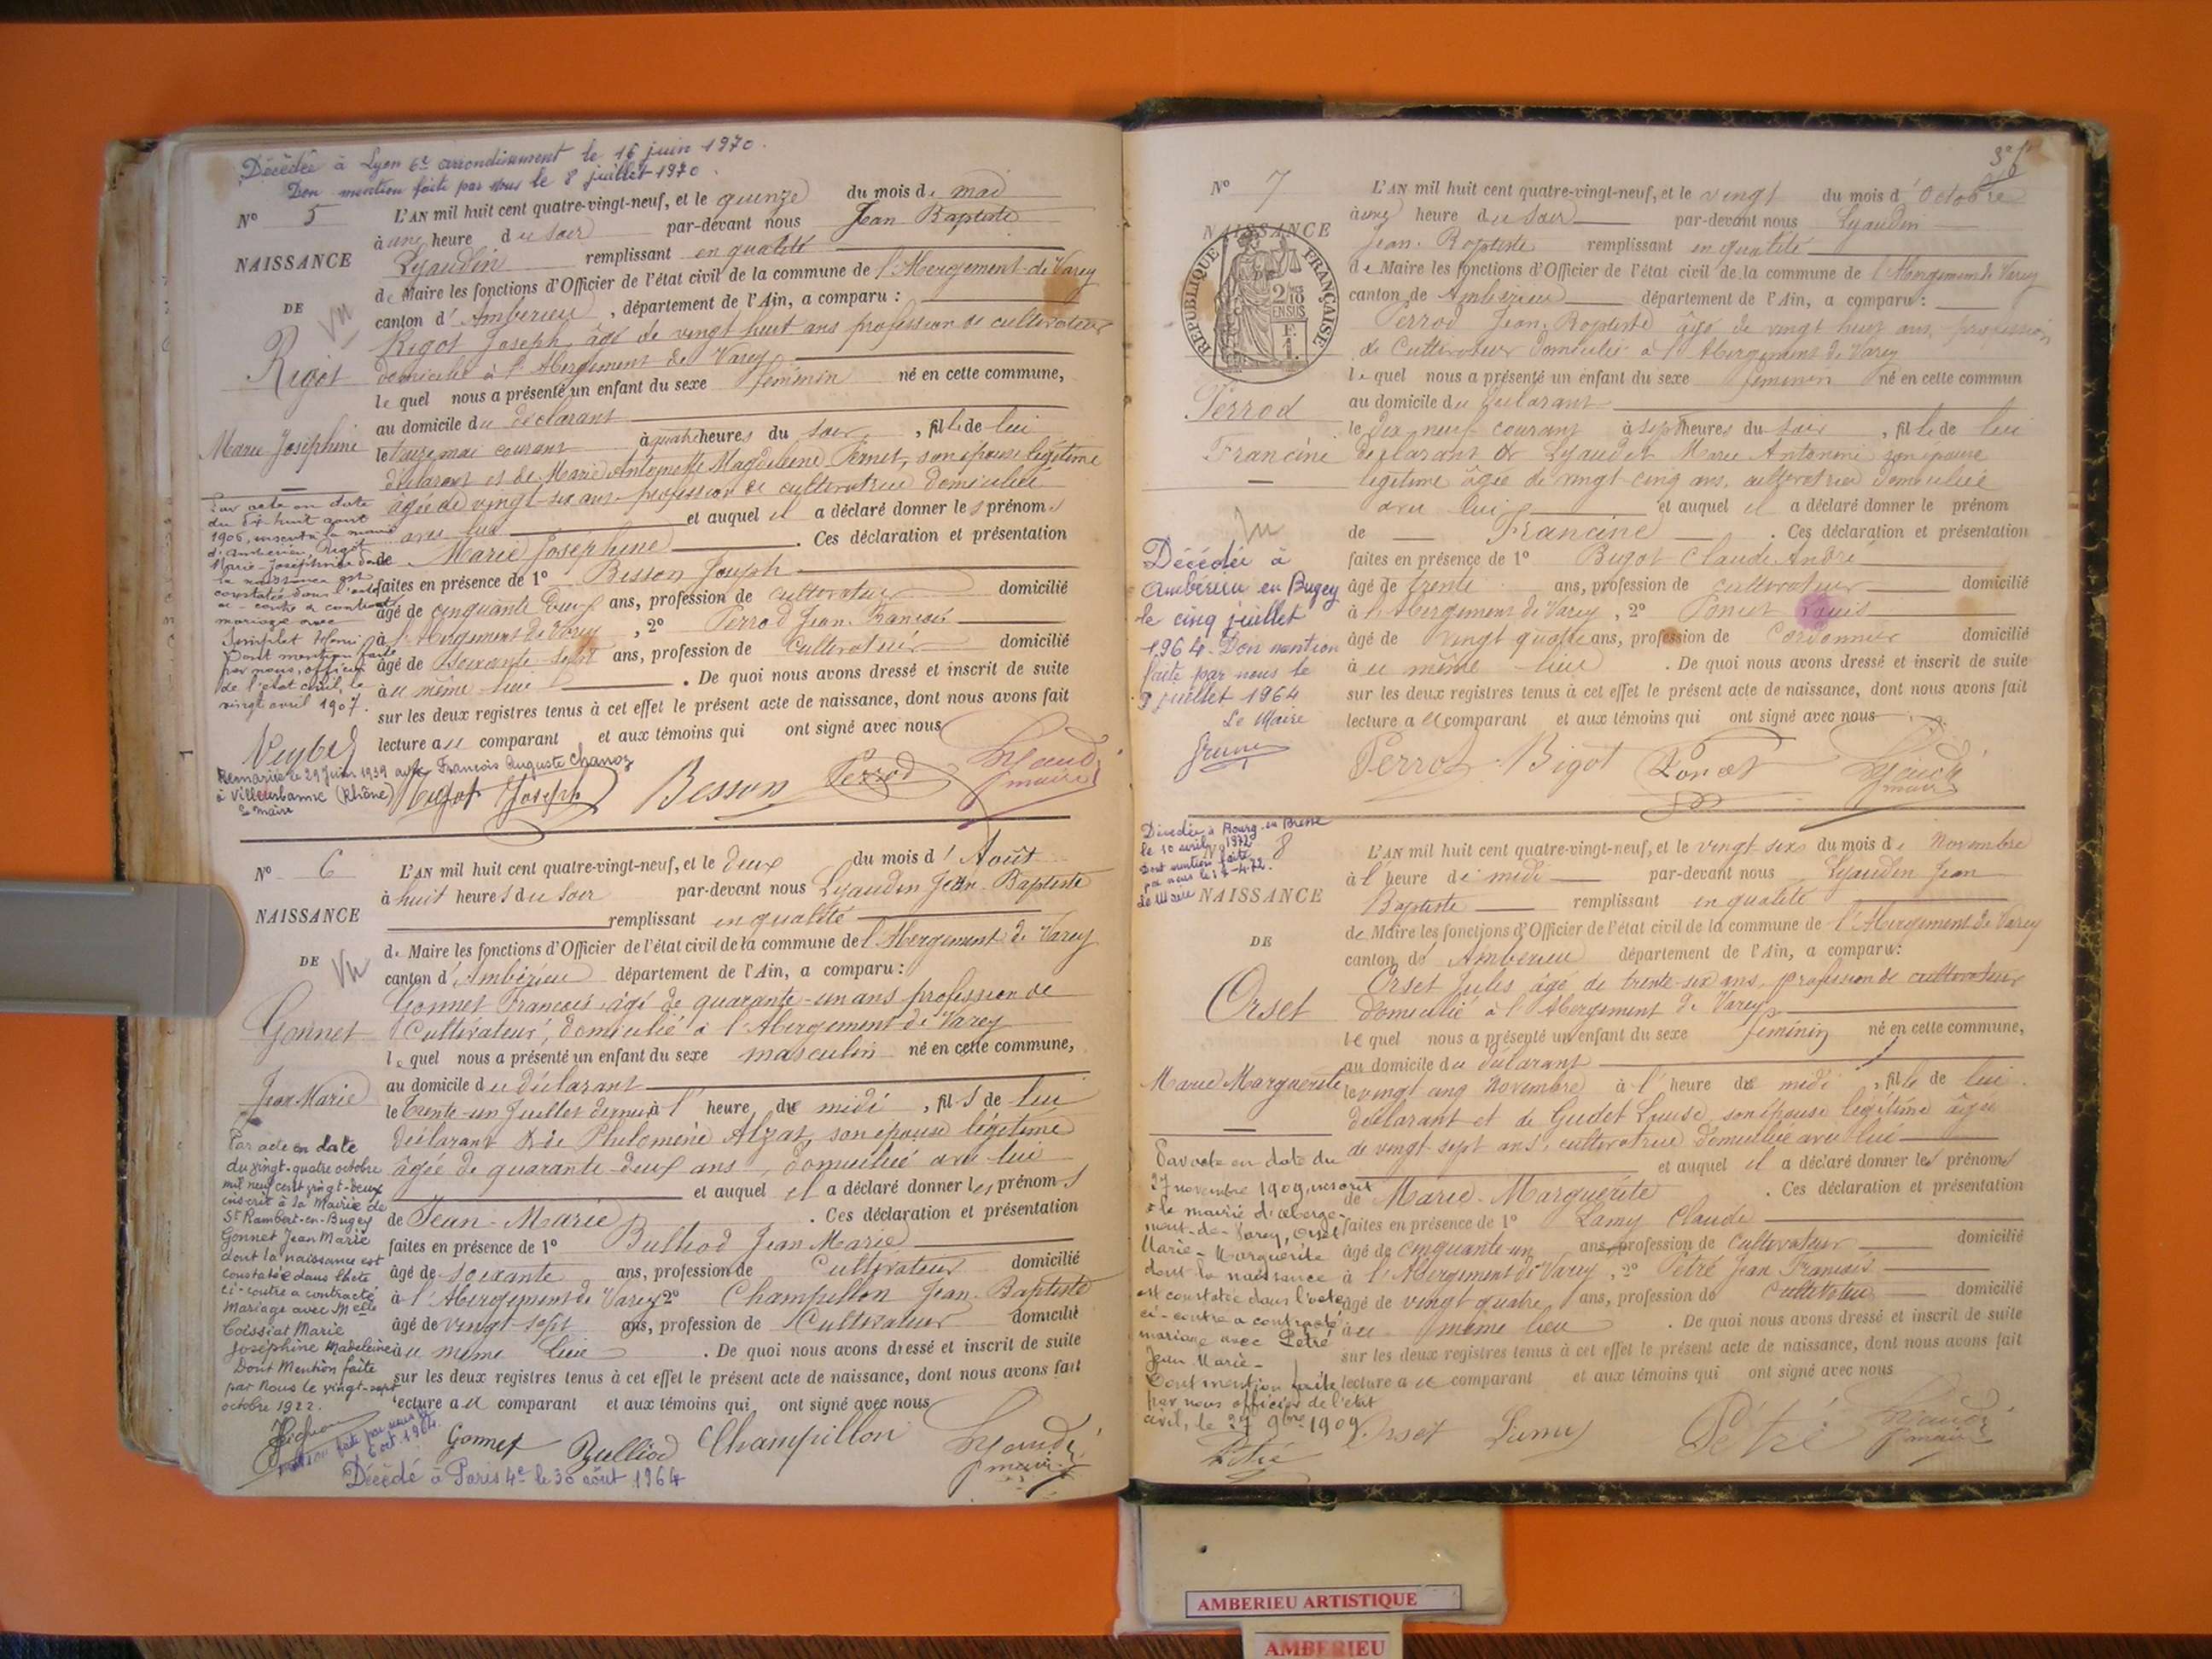 Décédée à Lyon 6e arrondissement le 16 juin 1970.
Don mention faite par nous le 8 juillet 1970.
No 5
NAISSANCE
DE
Vu
Rigot
Marie Joséphine
L'AN mil huit cent quatre-vingt-neuf, et le quinze du mois de mai
à une heure du soir par-devant nous Jean Baptiste
Lyaudin remplissant en qualité
de Maire les fonctions d'Officier de l'état civil de la commune de l'Abergement-de-Varey
canton d'Ambérieu, département de l'Ain, a comparu :
Rigot Joseph, âgé de vingt huit ans profession de cultivateur
domicilié à l'Abergement de Varey
le quel nous a présenté un enfant du sexe féminin né en cette commune,
au domicile du déclarant
le treize mai courant à quatre heures du soir, fille de lui
déclarant et de Marie Antoinette Magdeleine Fernet, son épouse légitime
âgée de vingt-six ans profession de cultivatrice domiciliée
avec lui et auquel il a déclaré donner les prénoms
de Marie Joséphine. Ces déclaration et présentation
faites en présence de 1o Besson Joseph
âgé de cinquante deux ans, profession de cultivateur domicilié
à l'Abergement de Varey, 2o Perrod Jean François
âgé de soixante-sept ans, profession de cultivateur domicilié
au même lieu. De quoi nous avons dressé et inscrit de suite
sur les deux registres tenus à cet effet le présent acte de naissance, dont nous avons fait
lecture au comparant et aux témoins qui ont signé avec nous
Par acte en date
du dix huit août
1906, inscrit à la mairie
d'Ambérieu, Rigot
Marie-Joséphine dont
la naissance est
constatée dans l'acte
ci-contre a contracté
mariage avec
Dont mention faite
par nous, officier
de l'état civil, le
vingt avril 1907.
Remariée le 29 Juin 1939 avec François Auguste Chanoz
à Villeurbanne (Rhône)
Le maire
Rigot Joseph Besson Perrod
maire
No 6
NAISSANCE
DE
Vu
Gonnet
Jean Marie
L'AN mil huit cent quatre-vingt-neuf, et le deux du mois d'Août
à huit heures du soir par-devant nous Lyaudin Jean-Baptiste
remplissant en qualité
de Maire les fonctions d'Officier de l'état civil de la commune de l'Abergement de Varey
canton d'Ambérieu département de l'Ain, a comparu :
Gonnet François âgé de quarante-un ans profession de
Cultivateur, domicilié à l'Abergement de Varey
le quel nous a présenté un enfant du sexe masculin né en cette commune,
au domicile du déclarant
le trente-un Juillet dernier à l'heure de midi, fils de lui
déclarant & de Philomène Alzas, son épouse légitime
âgée de quarante-deux ans, domiciliée avec lui
et auquel il a déclaré donner les prénoms
de Jean-Marie. Ces déclaration et présentation
faites en présence de 1o Bulliod Jean Marie
âgé de soixante ans, profession de Cultivateur domicilié
à l'Abergement de Varey 2o Champillon Jean-Baptiste
âgé de vingt-sept ans, profession de Cultivateur domicilié
au même lieu. De quoi nous avons dressé et inscrit de suite
sur les deux registres tenus à cet effet le présent acte de naissance, dont nous avons fait
lecture au comparant et aux témoins qui ont signé avec nous
Par acte en date
du vingt-quatre octobre
mil neuf cent vingt-deux
inscrit à la Mairie de
St Rambert-en-Bugey
Gonnet Jean Marie
dont la naissance est
constatée dans l'acte
ci-contre a contracté
Mariage avec Melle
Coissiat Marie
Joséphine Madeleine
Dont Mention faite
par Nous le vingt-sept
octobre 1922.
mention faite par nous le
6 oct. 1964.
Gonnet Bulliod Champillon
maire
Décédé à Paris 4e le 30 août 1964
No 7
NAISSANCE
RÉPUBLIQUE FRANÇAISE
2/10
EN SUS
Perrod
Francine
L'AN mil huit cent quatre-vingt-neuf, et le vingt du mois d'Octobre
à une heure du soir par-devant nous Lyaudin
Jean-Baptiste remplissant en qualité
de Maire les fonctions d'Officier de l'état civil de la commune de l'Abergement de Varey
canton de Ambérieu département de l'Ain, a comparu :
Perrod Jean-Baptiste âgé de vingt huit ans, profession
de Cultivateur domicilié à l'Abergement de Varey
le quel nous a présenté un enfant du sexe féminin né en cette commun
au domicile du déclarant
le dix neuf courant à sept heures du soir, fille de lui
déclarant & Lyaudet Marie Antonine son épouse
légitime âgée de vingt cinq ans, cultivatrice domiciliée
avec lui et auquel il a déclaré donner le prénom
de Francine. Ces déclaration et présentation
faites en présence de 1o Bigot Claude André
âgé de trente ans, profession de cultivateur domicilié
à l'Abergement de Varey, 2o Poncet Louis
âgé de vingt quatre ans, profession de Cordonnier domicilié
à ce même lieu. De quoi nous avons dressé et inscrit de suite
sur les deux registres tenus à cet effet le présent acte de naissance, dont nous avons fait
lecture au comparant et aux témoins qui ont signé avec nous
Vu
Décédée à
Ambérieu en Bugey
le cinq juillet
1964. Don mention
faite par nous le
9 juillet 1964
Le Maire
Perrod Bigot Poncet
maire
Décédée à Bourg-en-Bresse
le 10 avril 1972
Dont mention faite
par nous le 12-4-72.
Le Maire
8
NAISSANCE
DE
Orset
Marie Marguerite
L'AN mil huit cent quatre-vingt-neuf, et le vingt six du mois de Novembre
à l'heure de midi par-devant nous Lyaudin Jean
Baptiste remplissant en qualité
de Maire les fonctions d'Officier de l'état civil de la commune de l'Abergement de Varey
canton de Ambérieu département de l'Ain, a comparu :
Orset Jules âgé de trente-six ans, profession de cultivateur
domicilié à l'Abergement de Varey
le quel nous a présenté un enfant du sexe féminin né en cette commune,
au domicile du déclarant
le vingt cinq Novembre à l'heure de midi, fille de lui
déclarant et de Gudet Louise son épouse légitime âgée
de vingt-sept ans, cultivatrice domiciliée avec lui
et auquel il a déclaré donner les prénoms
de Marie-Marguerite. Ces déclaration et présentation
faites en présence de 1o Lamy Claude
âgé de cinquante-un ans, profession de Cultivateur domicilié
à l'Abergement de Varey, 2o Pétré Jean François
âgé de vingt quatre ans, profession de Cultivateur domicilié
au même lieu. De quoi nous avons dressé et inscrit de suite
sur les deux registres tenus à cet effet le présent acte de naissance, dont nous avons fait
lecture au comparant et aux témoins qui ont signé avec nous
Par acte en date du
27 novembre 1909, inscrit
à la mairie d'Aberge-
ment-de-Varey, Orset
Marie-Marguerite
dont la naissance
est constatée dans l'acte
ci-contre a contracté
mariage avec Pétré
Jean Marie-
Dont mention faite
par nous officier de l'état
civil, le 27 9bre 1909
Pétré
Orset Lamy Pétré
maire
AMBERIEU ARTISTIQUE
AMBERIEU